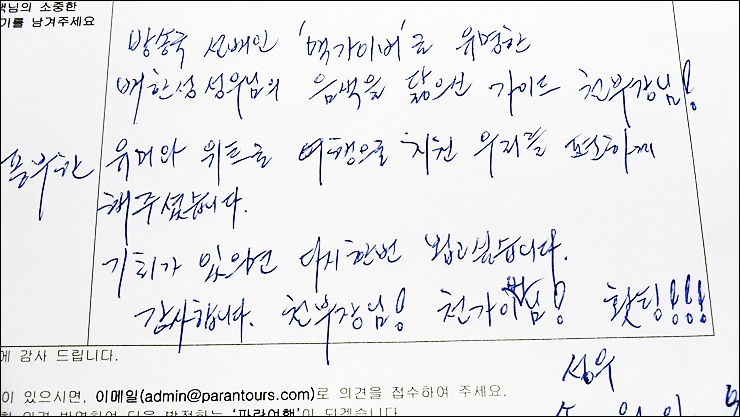 객님의 소중한
기를 남겨주세요
방송국 선배인 '맥가이버'로 유명한
배한성 성우님의 음색을 닮으신 가이드 천부장님!
풍부한 유머와 위트로 여행으로 지친 우리를 편하게
해주셨습니다.
기회가 있으면 다시한번 뵙고싶습니다.
감사합니다. 천부장님! 천가이버님! 홧팅!!!
에 감사 드립니다.
성우
이 있으시면, 이메일(admin@parantours.com)로 의견을 접수하여 주세요.
한 의견 반영하여 더욱 발전하는 '파란여행'이 되겠습니다.